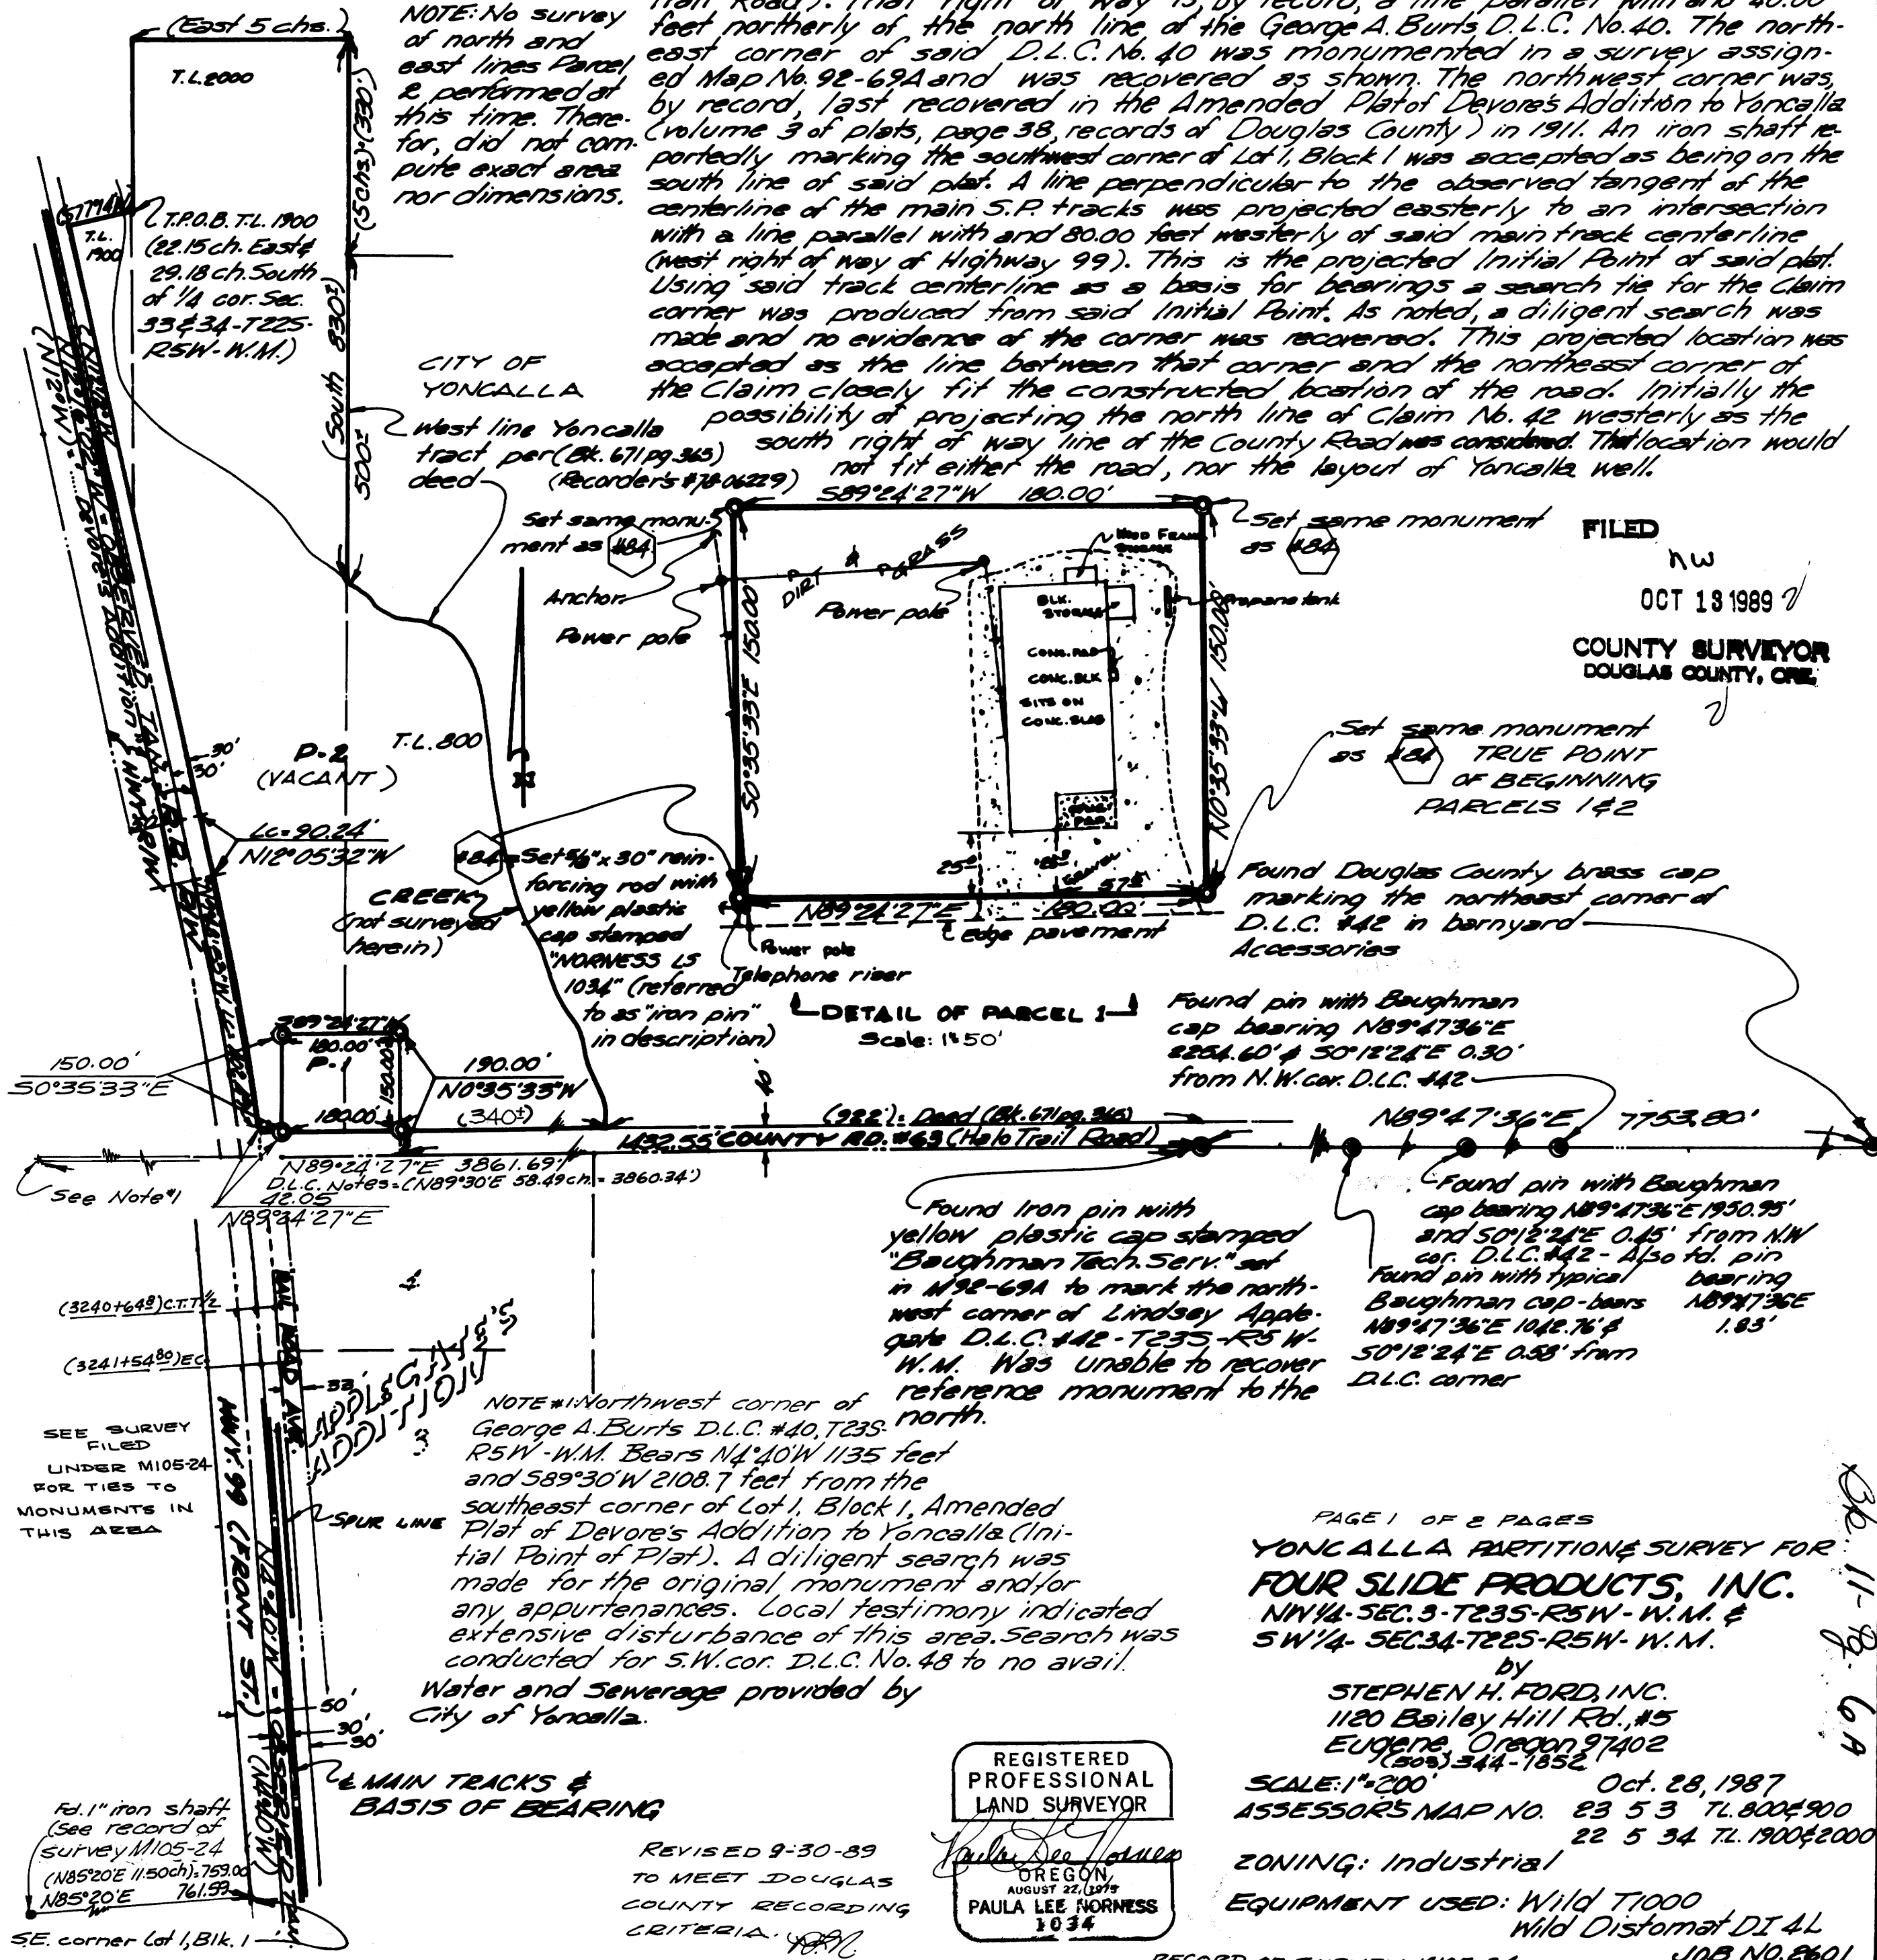 (East 5 chs.)
T.L.2000
NOTE: No survey
of north and
east lines Parcel
2 performed at
this time. There-
for, did not com-
pute exact area
nor dimensions.
Trail Road). That right of way is, by record, a line parallel with and 40.00
feet northerly of the north line of the George A. Burts D.L.C. No. 40. The north-
east corner of said D.L.C. No. 40 was monumented in a survey assign-
ed Map No. 92-69A and was recovered as shown. The northwest corner was,
by record, last recovered in the Amended Plat of Devore's Addition to Yoncalla
(volume 3 of plats, page 38, records of Douglas County) in 1911. An iron shaft re-
portedly marking the southwest corner of Lot 1, Block 1 was accepted as being on the
south line of said plat. A line perpendicular to the observed tangent of the
centerline of the main S.P. tracks was projected easterly to an intersection
with a line parallel with and 80.00 feet westerly of said main track centerline
(west right of way of Highway 99). This is the projected Initial Point of said plat.
Using said track centerline as a basis for bearings a search tie for the Claim
corner was produced from said Initial Point. As noted, a diligent search was
made and no evidence of the corner was recovered. This projected location was
accepted as the line between that corner and the northeast corner of
the Claim closely fit the constructed location of the road. Initially the
possibility of projecting the north line of Claim No. 42 westerly as the
south right of way line of the County Road was considered. That location would
not fit either the road, nor the layout of Yoncalla well.
(5chs)(330')
T.L.
1900
T.P.O.B. T.L. 1900
(22.15 ch. East &
29.18 ch. South
of 1/4 cor. Sec.
33 & 34-T22S-
R5W-W.M.)
(South 830±)
500±
CITY OF
YONCALLA
West line Yoncalla
tract per (Bk. 671 pg. 365)
deed
(Recorder's #78-06229)
(N12°0'W)
Devore's Addition
HWY R/W
R.R. R/W
30'
30'
P-2
(VACANT)
T.L. 800
Lc=90.24'
N12°05'32"W
CREEK
(not surveyed
herein)
S89°24'27"W 180.00'
Set same monu-
ment as #84
Anchor
Power pole
DIRT & GRASS
Power pole
WOOD FRAME
STORAGE
BLK.
STORAGE
Propane tank
CONC. PAD
CONC. BLK
SITS ON
CONC. SLAB
CONC.
PAD
GRAVEL
S0°35'33"E 150.00'
N0°35'33"W 150.00'
25±
57±
N89°24'27"E 180.00'
Edge pavement
Power pole
Telephone riser
DETAIL OF PARCEL 1
Scale: 1"=50'
Set same monument
as #84
FILED
NW
OCT 13 1989
COUNTY SURVEYOR
DOUGLAS COUNTY, ORE.
Set same monument
as #84 TRUE POINT
OF BEGINNING
PARCELS 1 & 2
#84 = Set 5/8" x 30" rein-
forcing rod with
yellow plastic
cap stamped
"NORNESS LS
1034" (referred
to as "iron pin"
in description)
Found Douglas County brass cap
marking the northeast corner of
D.L.C. #42 in barnyard
Accessories
Found pin with Baughman
cap bearing N89°47'36"E
2254.60' & S0°12'24"E 0.30'
from N.W. cor. D.L.C. #42
S89°24'27"W
180.00'
P-1
150.00'
180.00'
150.00'
S0°35'33"E
190.00'
N0°35'33"W
(340±)
40'
(922') = Deed (Bk. 671 pg. 365)
1432.55' COUNTY RD. #63 (Halo Trail Road)
N89°47'36"E 7753.80'
N89°24'27"E 3861.69'
D.L.C. Notes=(N89°30'E 58.49 ch. = 3860.34')
42.05
N89°24'27"E
See Note #1
Found Iron pin with
yellow plastic cap stamped
"Baughman Tech. Serv." set
in M92-69A to mark the north-
west corner of Lindsey Apple-
gate D.L.C. #42-T23S-R5W-
W.M. Was unable to recover
reference monument to the
north.
Found pin with Baughman
cap bearing N89°47'36"E 1950.95'
and S0°12'24"E 0.45' from N.W
cor. D.L.C. #42 - Also fd. pin
bearing
N89°47'36E
1.83'
Found pin with typical
Baughman cap-bears
N89°47'36"E 1042.76' &
S0°12'24"E 0.58' from
D.L.C. corner
(3240+64⁸) C.T.T. 1/2
(3241+54⁸⁰) EC
RAIL ROAD AVE.
33'
APPLEGATE'S
ADDITION
3
SEE SURVEY
FILED
UNDER M105-24
FOR TIES TO
MONUMENTS IN
THIS AREA
SPUR LINE
HWY. 99 (FRONT ST.)
N4°40'W = OBSERVED TAN.
(N4°40'W)
50'
30'
30'
NOTE #1: Northwest corner of
George A. Burts D.L.C. #40, T23S-
R5W-W.M. Bears N4°40'W 1135 feet
and S89°30'W 2108.7 feet from the
southeast corner of Lot 1, Block 1, Amended
Plat of Devore's Addition to Yoncalla (Ini-
tial Point of Plat). A diligent search was
made for the original monument and/or
any appurtenances. Local testimony indicated
extensive disturbance of this area. Search was
conducted for S.W. cor. D.L.C. No. 48 to no avail.
Water and Sewerage provided by
City of Yoncalla.
℄ MAIN TRACKS &
BASIS OF BEARING
Fd. 1" iron shaft
(See record of
survey M105-24
(N85°20'E 11.50ch)=759.00
N85°20'E 761.59
S.E. corner Lot 1, Blk. 1
REVISED 9-30-89
TO MEET DOUGLAS
COUNTY RECORDING
CRITERIA.
REGISTERED
PROFESSIONAL
LAND SURVEYOR
Paula Lee Norness
OREGON
AUGUST 22, 1975
PAULA LEE NORNESS
1034
PAGE 1 OF 2 PAGES
YONCALLA PARTITION & SURVEY FOR
FOUR SLIDE PRODUCTS, INC.
NW 1/4-SEC. 3-T23S-R5W-W.M. &
SW 1/4-SEC 34-T22S-R5W-W.M.
by
STEPHEN H. FORD, INC.
1120 Bailey Hill Rd., #5
Eugene, Oregon 97402
(503) 344-1852
SCALE: 1"=200' Oct. 28, 1987
ASSESSORS MAP NO. 23 5 3 TL. 800 & 900
22 5 34 T.L. 1900 & 2000
ZONING: Industrial
EQUIPMENT USED: Wild T1000
Wild Distomat DI 4L
JOB NO. 8601
Bk. 11-Pg. 6A